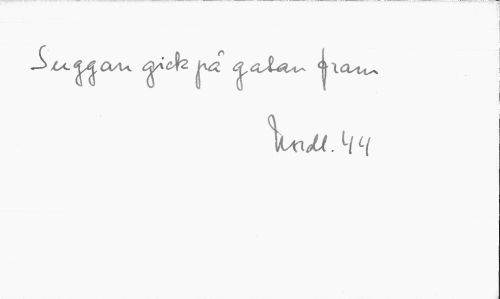 Suggan gick på gatan fram
Nordl. 44